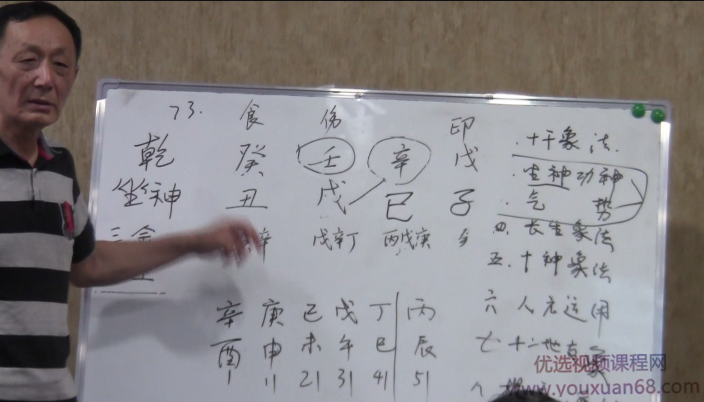 73. 食 伤 印
乾 癸 壬 辛 戊
坐神 丑 戌 巳 子
戊辛丁 丙戊庚
辛 庚 己 戊 丁 丙
酉 申 未 午 巳 辰
1 11 21 31 41 51
十干象法
坐神功神
气势
四. 长生象法
五. 十神象法
六 人元运用
七 十二地支
八
优选视频课程网
www.youxuan68.com